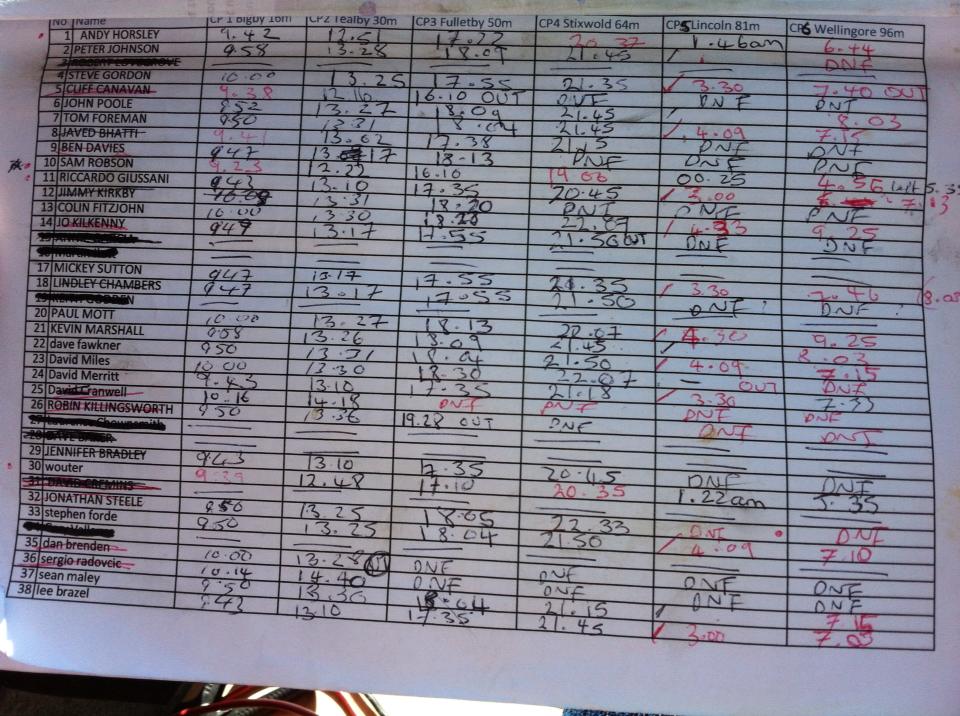 No Name CP 1 Bigby 16m CP2 Tealby 30m CP3 Fulletby 50m CP4 Stixwold 64m CP5 Lincoln 81m CP6 Wellingore 96m
1 ANDY HORSLEY 9.42 12.51 17.22 20.37 1.46am 6.44
2 PETER JOHNSON 958 13.28 18.09 21.45 DNF
3 ROBERT LOVEGROVE
4 STEVE GORDON 10.00 13.25 17.55 21.35 3.30 7.40 OUT
5 CLIFF CANAVAN 9.38 12.16 16.10 OUT DNF DNF DNF
6 JOHN POOLE 952 13.27 18.09 21.45 8.03
7 TOM FOREMAN 950 13.31 18.04 21.45 4.09 7.15
8 JAVED BHATTI 9.41 13.02 17.38 21.15 DNF DNF
9 BEN DAVIES 947 13.17 18.13 DNF DNF DNF
10 SAM ROBSON 9.23 12.22 16.10 19.06 00.25 4.56 left 5.35
11 RICCARDO GIUSSANI 943 13.10 17.35 20.45 3.00 7.13
12 JIMMY KIRKBY 13.31 18.20 DNF DNF DNF
13 COLIN FITZJOHN 10.00 13.30 18.28 22.07 4.33 9.25
14 JO KILKENNY 949 13.17 17.55 21.56 OUT DNF DNF
17 MICKEY SUTTON
18 LINDLEY CHAMBERS 947 13.17 17.55 21.35 3.30 7.46
947 13.17 17.55 21.50 DNF DNF
20 PAUL MOTT
21 KEVIN MARSHALL 10.00 13.27 18.13 22.07 4.30 9.25
22 dave fawkner 958 13.26 18.09 21.45 8.03
23 David Miles 950 13.31 18.04 21.50 4.09 7.15
24 David Merritt 10.00 13.30 18.30 22.07 OUT DNF
25 David Cranwell 9.43 13.10 17.35 21.18 3.30 7.33
26 ROBIN KILLINGSWORTH 10.16 14.18 DNF DNF DNF DNF
950 13.36 19.28 OUT DNF DNF DNF
28 DAVE BAKER
29 JENNIFER BRADLEY
30 wouter 943 13.10 17.35 20.45 DNF DNF
31 DAVID CREMINS 9.39 12.48 17.10 20.35 1.22am 5.35
32 JONATHAN STEELE
33 stephen forde 950 13.25 18.05 22.33 DNF DNF
950 13.25 18.04 21.50 4.09 7.10
35 dan brenden
36 sergio radovcic 10.00 13.28 DNF DNF DNF DNF
37 sean maley 10.14 14.40 DNF DNF DNF DNF
38 lee brazel 9.50 13.36 18.04 21.15 7.15
943 13.10 17.35 21.45 3.00 7.03